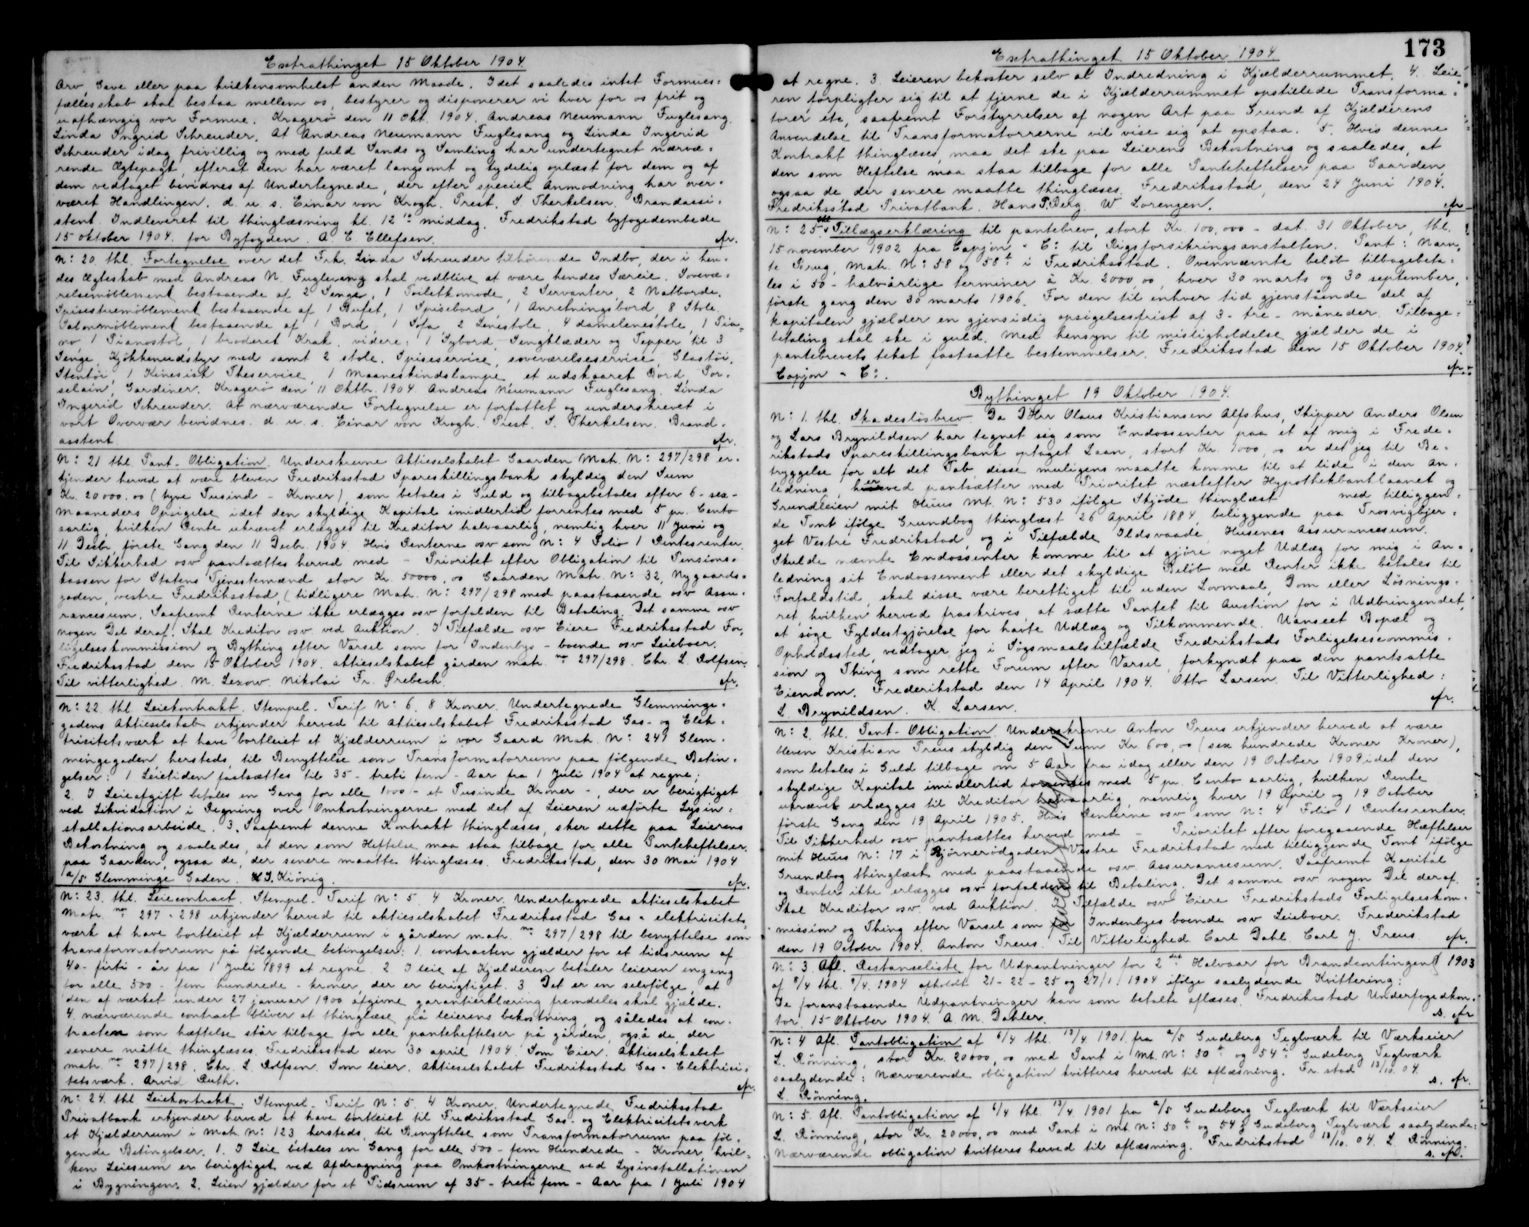 Extrathinget 15 Oktober 1904
Arv, Gave eller paa hvilkensomhelst anden Maade. I det saaledes intet Formues-
fællesskab skal bestaa mellem os, bestyrer og disponerer vi hver for os frit og
uafhængig vor Formue. Kragerø den 11 Okt. 1904. Andreas Neumann Fuglesang.
Linda Ingrid Schreuder. At Andreas Neumann Fuglesang og Linda Ingerid
Schreuder idag frivillig og med fuld Sands og Samling har undertegnet nærvæ-
rende Ægtepagt, efterat den har været langsomt og tydelig oplæst for dem og af
dem vedtaget bevidnes af Undertegnede, der efter speciel Anmodning har over-
været Handlingen. d u s. Einar von Krogh. Prest. S Therkelsen. Brandassi-
stent. Indleveret til thinglæsning kl. 12 middag. Fredrikstad byfogedembede
15 oktober 1904. for Byfogden. A E Ellefsen.
N: 20 thl. Fortegnelse over det Frk. Linda Schreuder tilhørende Indbo, der i hen-
des Ægteskab med Andreas N. Fuglesang skal vedblive at være hendes Særeie. Sovevæ-
relsemöblement bestaaende af 2 Senge, 1 Toiletkomode, 2 Servanter, 2 Natborde.
Spisestuemöblement bestaaende af 1 Bufet, 1 Spisebord, 1 Anretningsbord, 8 Stole
Salonmöblement bestaaende af 1 Bord, 1 Sofa, 2 Lenestole, 4 damelenestole, 1 Pia-
no 1 Pianostol, 1 broderet Krak. videre: 1 Sybord, Sengklæder og Tepper til 3
Senge, Kjökkenudstyr med samt 2 stole. Spiseservice, soveværelseservice, Glastöi,
Stentöi, 1 Kinesisk Theservice, 1 Maaneskindslampe, et udskaaret Bord, Por-
selain, Gardiner. Kragerø den 11 Oktb. 1904 Andreas Neumann Fuglesang. Linda
Ingerid Schreuder. At nærværende Fortegnelse er forfattet og underskrevet i
vort Overvær bevidnes. d. u. s. Einar von Krogh. Prest. S. Therkelsen. Brand-
asstent.
N: 21 thl. Pant-Obligation. Underskrevne Aktieselskabet Gaarden Mat. N: 297/298 er-
kjender herved at være bleven Fredriksstad Sparesskillingsbank skyldig den Sum
Kr. 20000.00 (tyve Tusind - Kroner), som betales i Guld og tilbagebetales efter 6-sex-
Maaneders Opsigelse idet den skyldige Kapital imidlertid forrentes med 5 pr. Cento
aarlig, hvilken Rente ukrævet erlægges til Kreditor halvaarlig, nemlig hver 11 Juni og
11 Decbr, første Gang den 11 Decbr. 1904 Hvis Renterne osv som N: 4 Folio 1 Renteesrenter.
Til Sikkerhed osv pantsættes herved med - Prioritet efter Obligation til Pensions-
kassen for Statens Tjenestemænd stor Kr. 50000.00 Gaarden Matr. N: 32, Nygaards-
gaden, vestre Fredriksstad, (tidligere Mat. N: 297/298 med paastaaende osv Assu-
rancesum. Saafremt Renterne ikke erlægges osv forfalden til Betaling. Det samme osv
nogen Del deraf. Skal Kreditor osv ved Auktion. I Tilfælde osv Eiere Fredriksstad For-
ligelseskommission og Bything efter Varsel som for Indenbys - boende osv Leieboer.
Fredriksstad den 15 Oktober 1904. aktieselskabet gården matr. no 297/298. Chr. L. Rolfsen.
Til vitterlighed M. Lexow. Nikolai Fr. Ørebech.
N: 22. thl. Leiekontrakt. Stempel. Tarif N: 6, 8 Kroner. Undertegnede Glemminge-
gadens Aktieselskab erkjender herved til Aktieselskabet Fredriksstad Gas- og Elek-
trisitetsværk at have bortleiet et Kjælderrum i vor Gaard Mat. N: 249 Glem-
mingegaden hersteds, til Benyttelse som Transformatorrum paa følgende Betin-
gelser: 1 Leietiden fastsættes til 35 - treti fem - Aar fra 1 Juli 1904 at regne;
2. I Leieafgift betales en Gang for alle 1000 - et Tusinde Kroner -, der er berigtiget
ved Likvidation i Regning over Omkostningerne med det af Leieren udførte Lysin-
stallationsarbeide. 3. Saafremt denne Kontrakt thinglæses, sker dette paa Leierens
Bekostning og saaledes, at den som Heftelse maa staa tilbage for alle Panteheftelser
paa Gaarden, ogsaa de, der senere maatte thinglæses. Fredriksstad, den 30 Mai 1904
A/S Glemminge Gaden. H J. Kiönig.
N: 23. thl. Leiecontract. Stempel. Tarif N: 5. 4 Kroner. Undertegnede aktieselskabet
Matr. no 297-298 erkjender herved til aktieselskabet Fredriksstad Gas - elektricitets
værk at have bortleiet et Kjælderrum i gården matr. no 297/298 til benyttelse som
transformatorrum på følgende betingelser: 1. contracten gjælder for et tidsrum af
40 - firti - år fra 1 Juli 1899 at regne. 2. I leie af Kjælderen betaler leieren engang
for alle 500 - fem hundrede - kroner, der er berigtiget. 3. Det er en selvfølge at
den af værket under 27 januar 1900 afgivne garantierklæring fremdeles skal gjælde.
4. nærværende contract bliver at thinglæse på leierens bekostning og således at con-
tracten som hæftelse står tilbage for alle panteheftelser på gården, også de, der
senere måtte thinglæses. Fredriksstad den 30 april 1904. Som Eier. Aktieselskabet
matr. no 297/298. Chr. L. Rolfsen. Som leier. Aktieselskabet Fredriksstad Gas - Elektrici-
tetsværk. Arvid Ruth.
N: 24. thl Leiekontrakt. Stempel. Tarif N: 5, 4 Kroner, Undertegnede Fredriksstad
Privatbank erkjender herved at have bortleiet til Fredriksstad Gas- og Elektricitetsverk
et Kjælderrum i Mat. N: 123 hersteds til Benyttelse som Transformatorrum paa föl-
gende Betingelser. 1. I Leie betales en Gang for alle 500 - fem Hundrede - Kroner, hvil-
ken Leiesum er berigtiget ved Afdragning paa Omkostningerne ved Lysinstallationen
i Bygningen. 2. Leien gjælder for et Tidsrum af 35 - treti fem - Aar fra 1 Juli 1904
173
Extrathinget 15 Oktober 1904
at regne. 3. Leieren bekoster selv al Indredning i Kjælderrummet. 4. Leie-
ren forpligter sig til at fjerne de i Kjælderrummet opstillede Transforma-
torer etc, saafremt Forstyrrelser af nogen Art paa Grund af Kjælderens
Anvendelse til Transformatorrerne vil vise sig at opstaa. 5. Hvis denne
Kontrakt thinglæses, maa det ske paa Leierens Bekostning og saaledes, at
den som Heftelse maa staa tilbage for alle Panteheftelser paa Gaarden,
ogsaa de der senere maatte thinglæses. Fredriksstad, den 24 Juni 1904.
Fredriksstad Privatbank. Hans P. Berg. W Lorenzen.
N: 25 thl Tillægserklæring til pantebrev, stort Kr. 100,000 - dat. 31 Oktober, thl.
15 november 1902 fra Capjon - C: til Rigsforsikringsanstalten. Pant: Narn-
te Brug, Matr. N: 58 og 58 b i Fredriksstad. Ovennævnte beløb tilbagebeta-
les i 50 - halvårlige terminer à Kr. 2000,00, hver 30 marts og 30 september,
første gang den 30 marts 1906. For den til enhver tid gjenstående del af
kapitalen gjælder en gjensidig opsigelsesfrist af 3 - tre - måneder. Tilbage-
betaling skal ske i guld. Med hensyn til misligholdelse gjælder de i
pantebrevets tekst fastsatte bestemmelser. Fredriksstad den 15 Oktober 1904.
Capjon - C:.
Bythinget 19 Oktober 1904.
N: 1. thl. Skadeslösbrev. Da D'Hrr Olaus Kristiansen Alfshus, Skipper Anders Olsen
og Lars Brynildsen har tegnet sig som Endossenter paa et af mig i Frede-
rikstads Spareskillingsbank optaget Laan, stort Kr. 1000,00 er det jeg til Be-
tryggelse for alt det Tab disse muligens maatte komme til at lide i den An-
ledning, herved pantsætter med Prioritet næstefter Hypothekbantlaanet og
Grundleien mit Huus Mt. N: 530 ifölge Skjöde thinglæst med tilliggen-
de Tomt ifölge Grundbog thinglæst 26 April 1884, beliggende paa Trosvigbjer-
get Vestre Fredriksstad, og i Tilfælde Ildsvaade, Husenes Assurancesum.
Skulde nævnte Endossenter komme til at gjöre noget Udlæg for mig i An-
ledning sit Endossement eller det skyldige Belöb med Renter ikke betales til
Forfaldstid, skal disse være berettiget til uden Lovmaal, Dom eller Løsnings-
ret hvilken herved fraskrives at sætte Pantet til Auction for i Udbringendet,
at söge Fyldestgjörelse for havte Udlæg og Tilkommende. Uanseet Bopæl og
Opholdssted, vedtager jeg i Sögsmaalstilfælde Fredrikstads Forligelsescommis-
sion og Thing som rette Forum efter Varsel, forkyndt paa den pantsatte
Eiendom. Frederikstad den 14 April 1904. Otto Larsen. Til Vitterlighed:
L Brynildsen. K. Larsen.
N: 2. thl. Pant-Obligation Underskrevne Anton Preus erkjender herved at være
bleven Kristian Preus skyldig den Sum Kr 600,00 (sex hundrede Kroner Kroner),
som betales i Guld tilbage om 5 Aar fra idag eller den 19 October 1909 idet den
skyldige Kapital imidlertid forrentes med 5 pr. Cento aarlig, hvilken Rente
ukrævet erlægges til Kreditor halvaarlig, nemlig hver 19 April og 19 October
første Gang den 19 April 1905. Hvis Renterne osv som N: 4 Folio 1 Rentesrenter.
Til Sikkerhed osv pantsættes herved med - Prioritet efter foregaaende Hæftelser
mit Huus N: 17 i Bjørnerødgaden Vestre Fredrikstad med tilliggende Tomt ifölge
Grundbog thinglæst med paastaaende osv Assurancesum. Saafremt Kapital
og Renter ikke erlægges osv forfalden til Betaling. Det samme osv nogen Del deraf.
Skal Kreditor osv ved Auktion. I Tilfælde osv Eiere Fredrikstads Forligelseskom-
mission og Thing efter Varsel som for Indenbyes boende osv Leieboer. Frederikstad
den 19 October 1904. Anton Preus. Til Vitterlighed Carl Dahl. Carl J. Preus.
N: 3 Afl. Restanceliste for Udpantninger for 2det Halvaar for Brandcontingent 1903
af 8/4 thl. 9/4. 1904 afholdt 21-22-25 og 27/1 1904 ifölge saalydende Kvittering:
De foranstaaende Udpantninger kan som betalte aflæses. Fredriksstad Underfogedkon-
tor 15 Oktober 1904. A M. Dahler.
N: 4 Afl. Pantobligation af 6/4 thl. 13/4 1901 fra A/S Gudeberg Teglværk til Værkseier
L. Rønning, stor Kr. 20000,00 med Pant i Mt. N: 50 b og 54 b Gudeberg Teglværk
saalydende: Nærværende obligation kvitteres herved til aflæsning. Fr. stad 13/10. 04.
L. Rønning.
N: 5. Afl. Pantobligation af 6/4 thl. 13/4 1901 fra A/S Gudeberg Teglværk til Værkseier
L. Rønning, stor Kr. 20000,00 med Pant i Mt N: 50 b og 54 b Gudeberg Teglværk saalydende:
Nærværende obligation kvitteres herved til aflæsning. Fredrikstad 13/10. 04. L. Rønning.